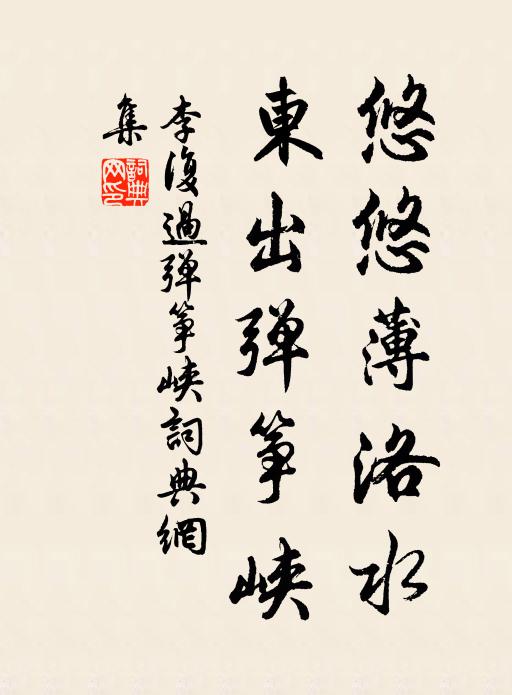 悠悠薄洛水
東出弹筝峡
李復過弹筝峡詞典網
集
詞典网印